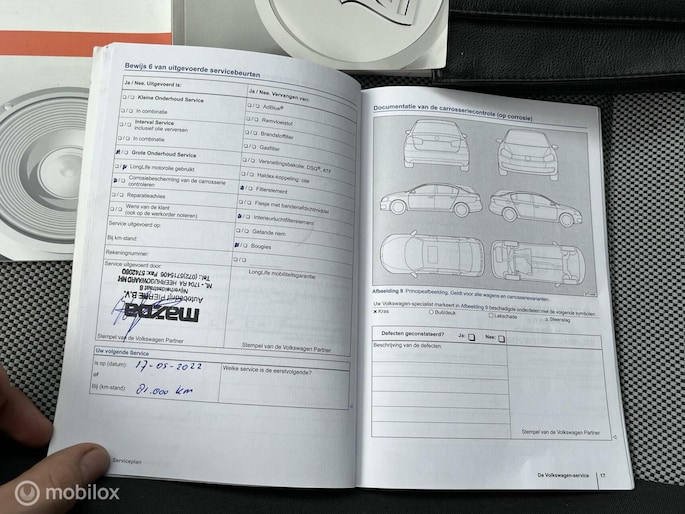 Bewijs 6 van uitgevoerde servicebeurten
Ja / Nee. Uitgevoerd is:
Kleine Onderhoud Service
In combinatie
Interval Service
inclusief olie verversen
In combinatie
Grote Onderhoud Service
LongLife motorolie gebruikt
Corrosiebescherming van de carrosserie
controleren
Reparatieadvies
Wens van de klant
(ook op de werkorder noteren)
Service uitgevoerd op:
Bij km-stand:
Rekeningnummer:
Service uitgevoerd door:
mazda
Autobedrijf PIERRE B.V.
Nijverheidsstraat 6
NL, 1704 RA HEERHUGOWAARD NH
Tel.: (072)5715406 Fax: 5742060
Stempel van de Volkswagen Partner
Ja / Nee. Vervangen van:
AdBlue®
Remvloeistof
Brandstoffilter
Gasfilter
Versnellingsbakolie: DSG®, ATF
Haldex-koppeling: olie
Filterelement
Flesje met bandenafdichtmiddel
Interieurluchtfilterelement
Getande riem
Bougies
LongLife mobiliteitsgarantie:
Stempel van de Volkswagen Partner
Uw volgende Service
is op (datum): 17-05-2022
of
Bij (km-stand): 81.000 km
Welke service is de eerstvolgende?
Serviceplan
Documentatie van de carrosseriecontrole (op corrosie)
Afbeelding 9 Principeafbeelding. Geldt voor alle wagens en carrosserievarianten.
Uw Volkswagen-specialist markeert in Afbeelding 9 beschadigde onderdelen met de volgende symbolen:
× Kras ○ Buil/deuk □ Lakschade △ Steenslag
Defecten geconstateerd? Ja: Nee:
Beschrijving van de defecten:
Stempel van de Volkswagen Partner
De Volkswagen-service 17
mobilox